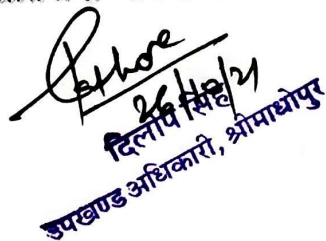 Rathore
26/10/21
दिलीप सिंह
उपखण्ड अधिकारी, श्रीमाधोपुर